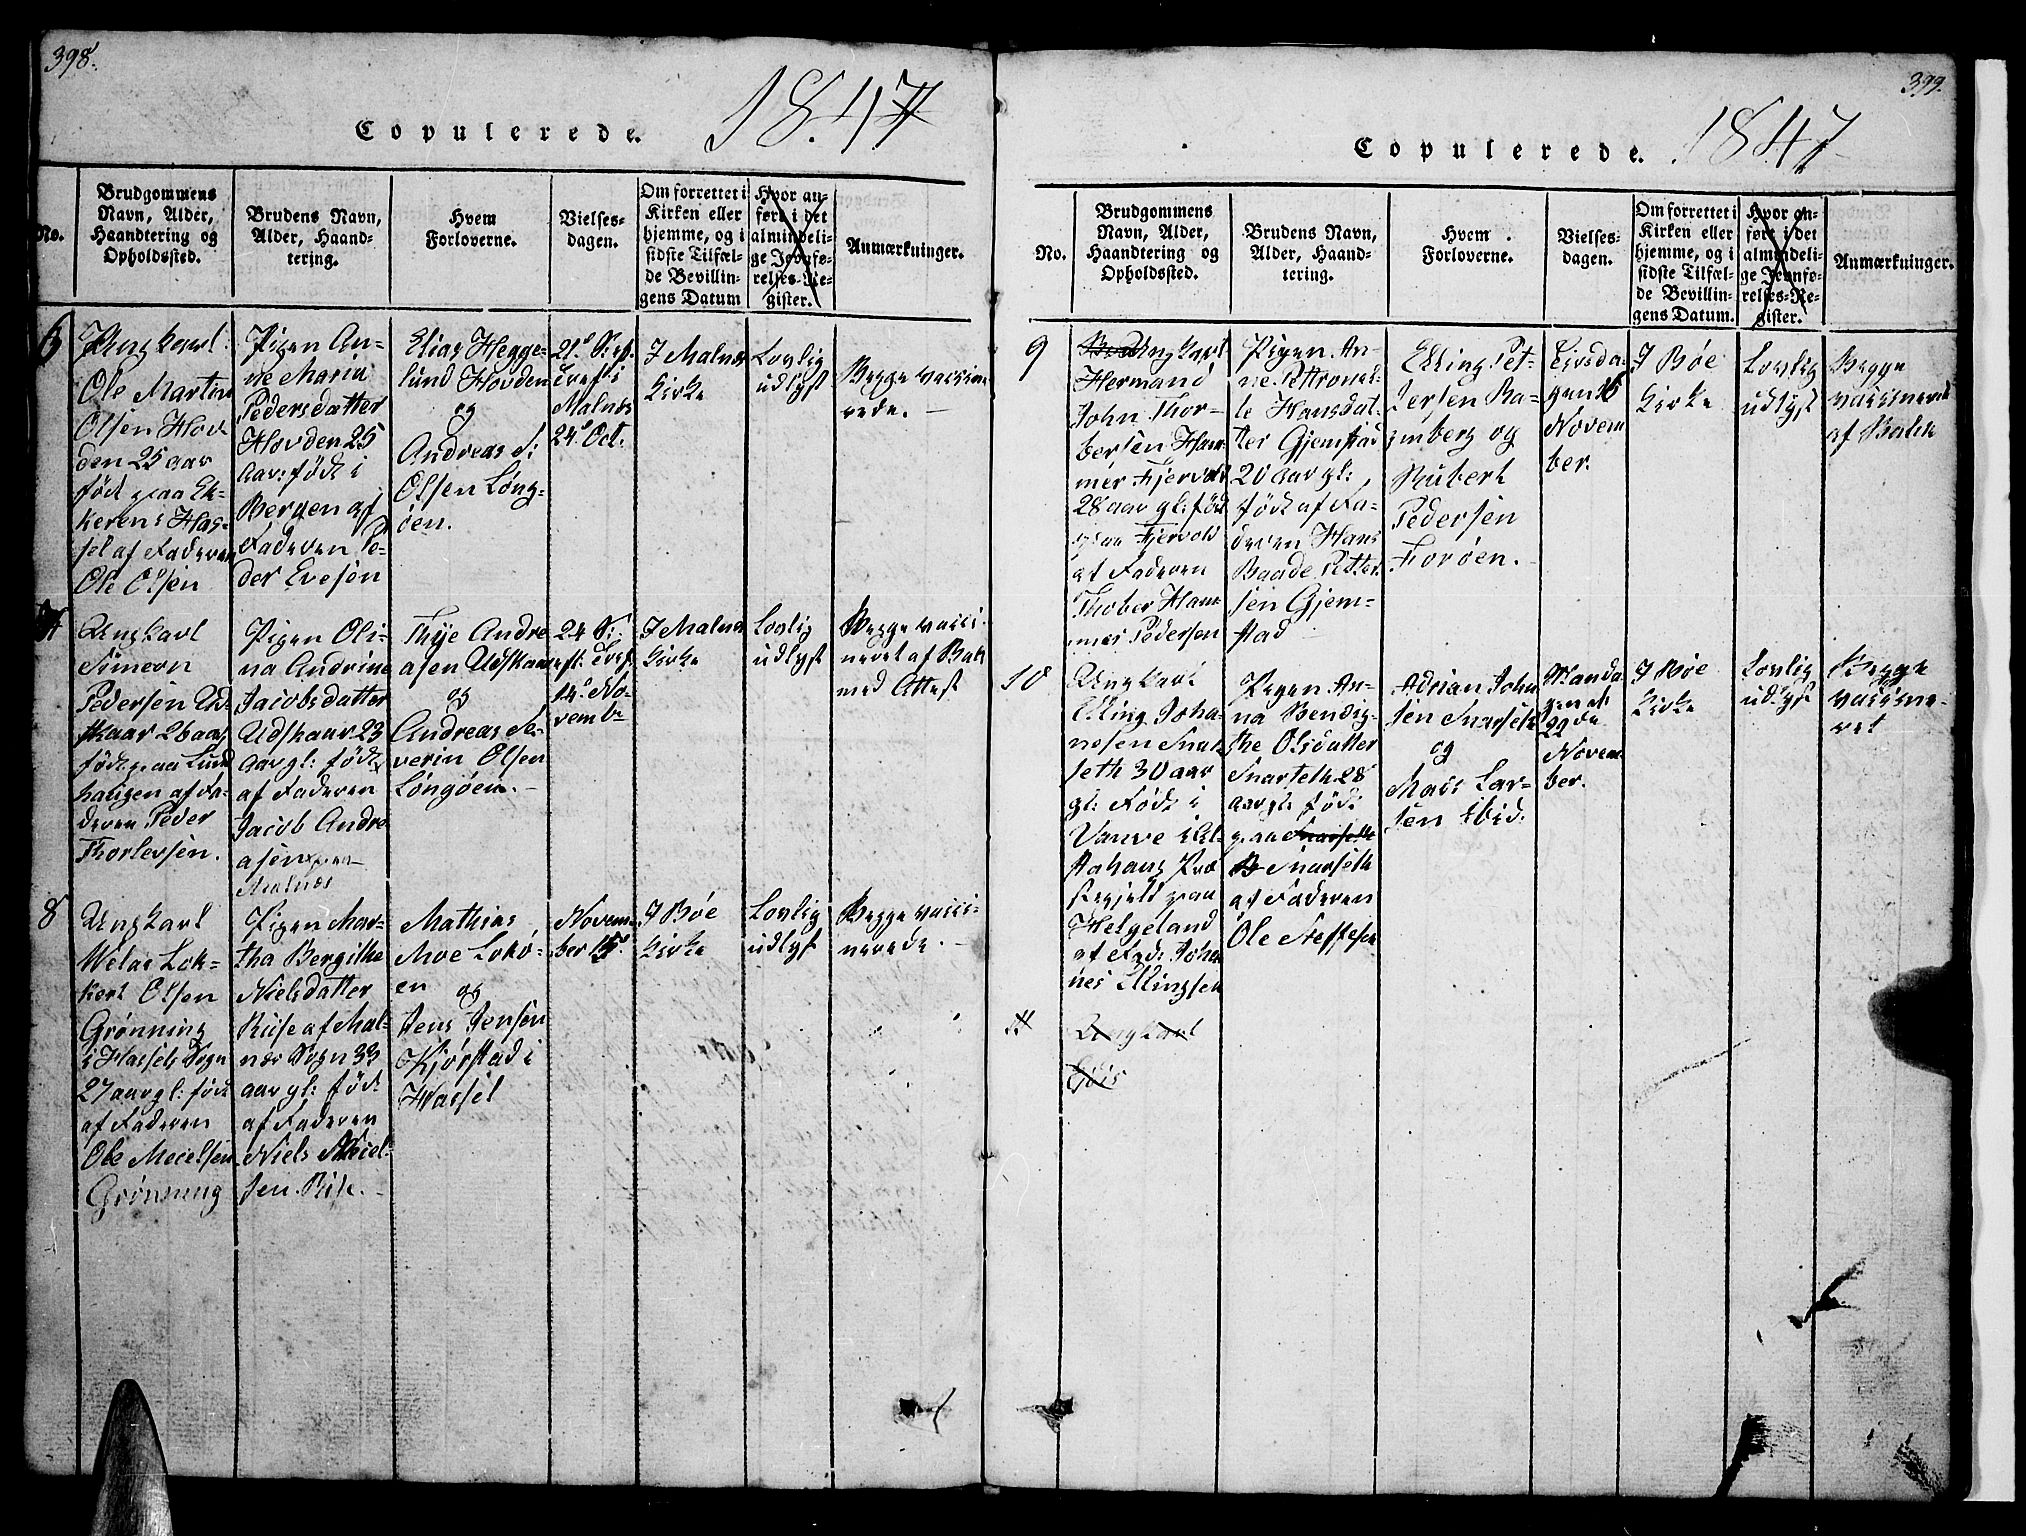 398.
Copulerede. 1847
No.
Brudgommens
Navn, Alder,
Haandtering og
Opholdssted.
Brudens Navn,
Alder, Haand-
tering.
Hvem
Forloverne.
Vielses-
dagen.
Om forrettet i
Kirken eller
hjemme, og i
sidste Tilfæl-
de Bevillin-
gens Datum
Hvor an-
ført i det
almindeli-
ge Jevnfø-
relses-Re-
gister.
Anmærkninger.
6
Ungkarl:
Ole Martin
Olsen Hov-
den 25 aar
født paa Ek-
kerens Has-
sel af Faderen
Ole Olsen
Pigen An-
ne Maria
Pedersdatter
Hovden 25
aar: født i
Bergen af
Faderen Pe-
der Evesen
Elias Hegge-
lund Hovden
og
Andreas S:
Olsen Long-
öen.
21. S: ef.
Tref: i
Malnæs
24. Oct.
I Malnæs
Kirke
Lovlig
udlyst
Begge vaccine-
rede. -
Ungkarl
Simeon
Pedersen Ud-
skaar 26 aar
født paa Lund
haugen af Fa-
deren Peder
Thorlevsen.
Pigen Oli-
na Andrine
Jacobsdatter
Udskaar 23
aar gl: født
af Faderen
Jacob Andre
asen paa
Malnæs
Thye Andre
asen Udskaar
og
Andreas Se-
verin Olsen
Longöen. -
24 S:
eft. Tref.
14. No-
vemb-
I Malnæs
Kirke
Lovlig
udlyst
Begge vacci-
neret af Bak
med Attest
8
Ungkarl
Welas Lok-
kert Olsen
Grönning
i Hassels Sogn
27 aar gl: født
af Faderen
Ole Meielsen
Grönning
Pigen Mar-
tha Bergithe
Nielsdatter
Rise af Mal-
næs Sogn 33
aar gl: født
af Faderen
Niels Niel-
sen Rise. -
Mathias
Moe Lokö-
en og
Jens Jensen
Kjörstad i
Hassel
Novem-
ber 15.
I Böe
Kirke
Lovlig
udlyst
Begge vacci-
nerede. -
399.
Copulerede. 1847
No.
Brudgommens
Navn, Alder,
Haandtering og
Opholdssted.
Brudens Navn,
Alder, Haand-
tering.
Hvem
Forloverne.
Vielses-
dagen.
Om forrettet i
Kirken eller
hjemme, og i
sidste Tilfæl-
de Bevillin-
gens Datum.
Hvor an-
ført i det
almindeli-
ge Jevnfø-
relses-Re-
gister.
Anmærkninger.
9
Ungkarl
Hermand
John Thor-
bersen Ham-
mer Fjervold
28 aar gl: født
paa Fjervold
af Faderen
Thober Ham-
mer Pedersen
Pigen An-
ne Pettronel-
le Hansdat-
ter Gjemstad
20 aar gl:
født af Fa-
deren Hans
Baade Petter
sen Gjem-
stad
Elling Pet-
tersen Ra-
mberg og
Rubert
Pedersen
Foröen.
Tirsda-
gen 16
Novem
ber.
I Böe
Kirke
Lovlig
udlyst
Begge
vaccinered
af Bakk
10
Ungkarl
Elling Joha-
nesen Snar-
seth 30 aar
gl: Födt i
Vanve i Al-
stahaug Præ
stegjeld paa
Helgeland
af Fad: Joha
nes Ellingsen
Pigen An-
na Bendig-
the Olsdatter
Snarseth 28
aar gl: født
paa Snarseth
Snarseth
af Faderen
Ole Steffesen
Adrian John
sen Snarseth
og
Mass Lar-
sen Ibid.
Manda
gen d:
22de
Novem-
ber.
I Böe
Kirke
Lovlig
udlyst
Begge
vaccine-
ret
11
Ungkarl